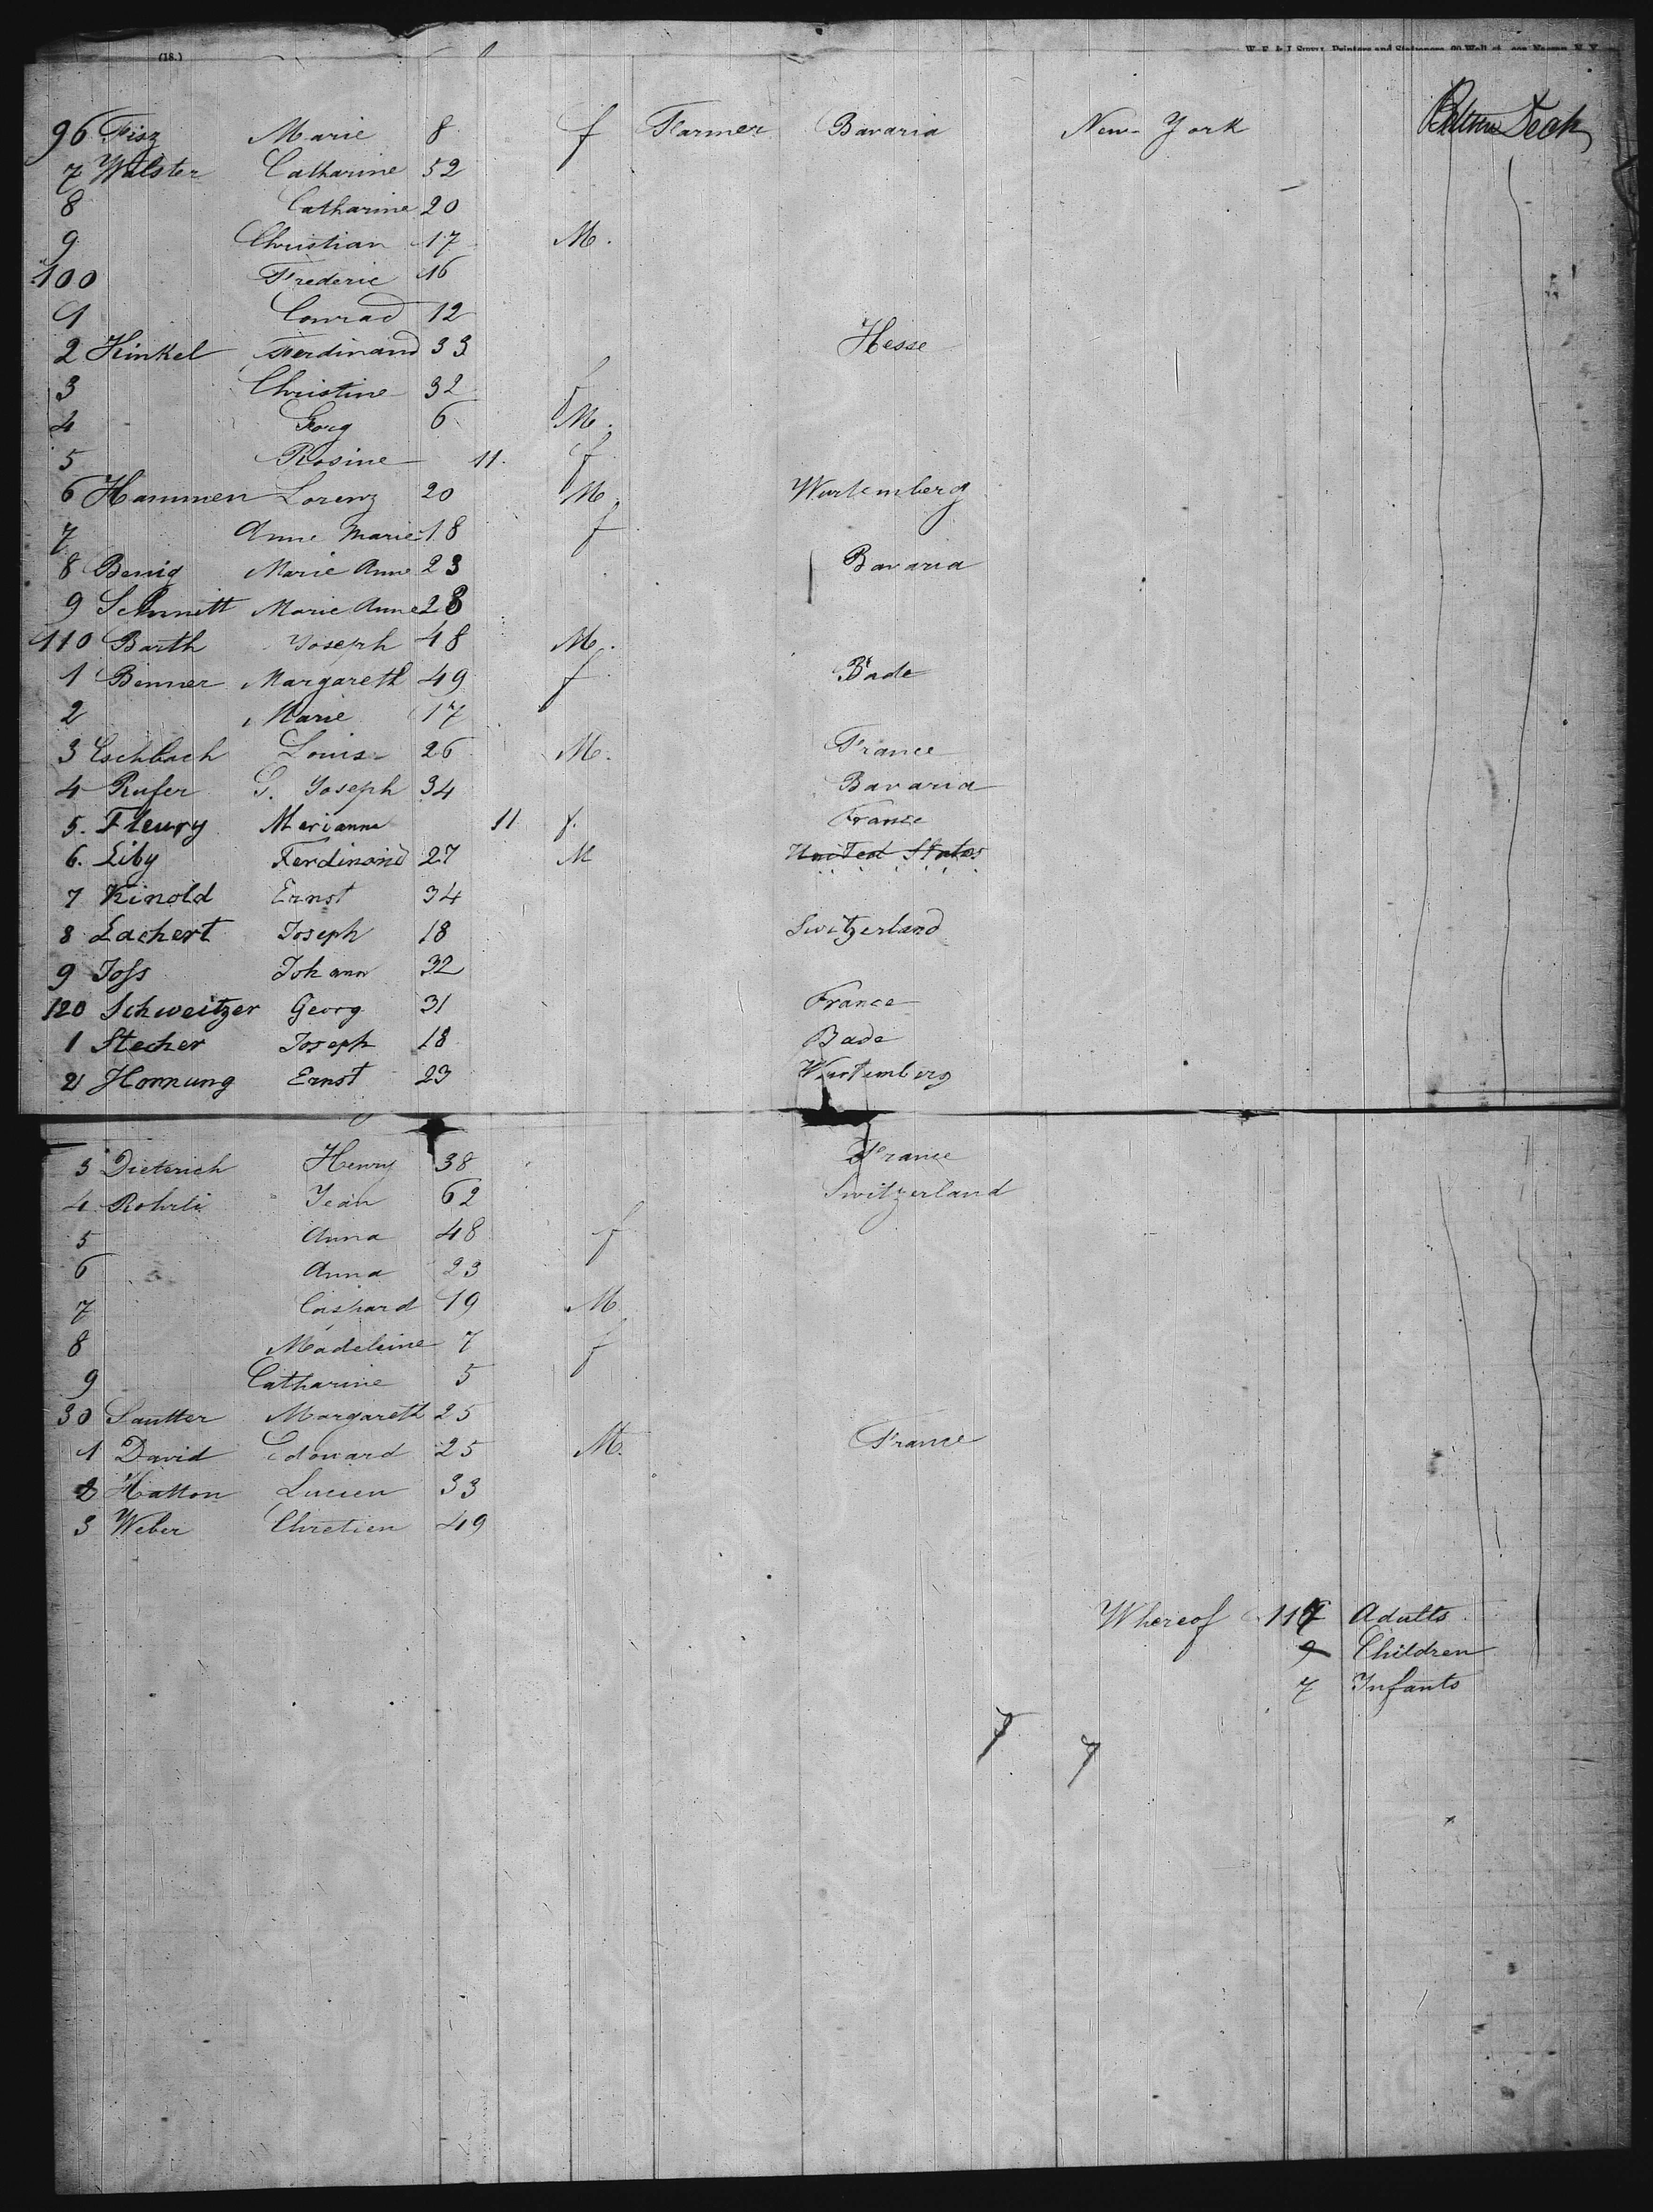 (18.)
96 Fisz Marie 8 f Farmer Bavaria New-York Between Deck
7 Walster Catharine 52
8 Catharine 20
9 Christian 17 M.
100 Frederic 16
1 Conrad 12
2 Hinkel Ferdinand 33 Hesse
3 Christine 32 f
4 Georg 6 M.
5 Rosine 11. f
6 Hammen Lorenz 20 M. Wurtemberg
7 Anne Marie 18 f
8 Benig Marie Anne 23 Bavaria
9 Schmitt Marie Anne 28
110 Barth Joseph 48 M.
1 Benner Margareth 49 f Bade
2 Marie 17
3 Eschbach Louis 26 M. France
4 Rufer G. Joseph 34 Bavaria
5. Fleury Marianna 11 f. France
6. Liby Ferdinand 27 M United States
7 Kinold Ernst 34
8 Lachert Joseph 18 Switzerland
9 Joss Johann 32
120 Schweitzer Georg 31 France
1 Stecher Joseph 18 Bade
2 Hornung Ernst 23 Wurtemberg
3 Dieterich Henry 38 France
4 Rohrli Jean 62 Switzerland
5 Anna 48 f
6 Anna 23
7 Caspard 19 M
8 Madeleine 7 f
9 Catharine 5
30 Sautter Margareth 25
1 David Edouard 25 M. France
2 Hatton Lucien 33
3 Weber Chretien 49
Whereof 117 Adults
9 Children
7 Infants
7 7